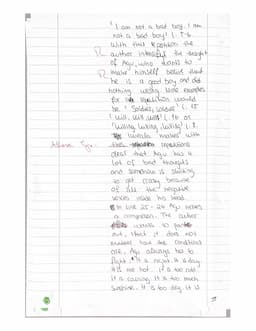 "I am not a bad boy. I am
not a bad boy" l. 5-6
With this repetition the
author intensify the thought
of Agu, who wants to
make himself belief that
he is a good boy and did
nothing wrong. More examples
for repetition would
be "Soldier, soldier" l. 15
l. 16 or
"killing, killing, killing" l.
makes with
repetitions
clear that Agu has a
lot of bad thoughts
and somehow is starting
to get crazy because
of all the negative
voices inside his head.
In line 25 - 26 Agu makes
a comparison. The author
wants to point
out, that it does not
matter how the conditions
are, Agu always has to
fight. "It is night. It is day.
It is hot. It is too cold.
It is raining. It is too much
sunshine. It is too dry. It is